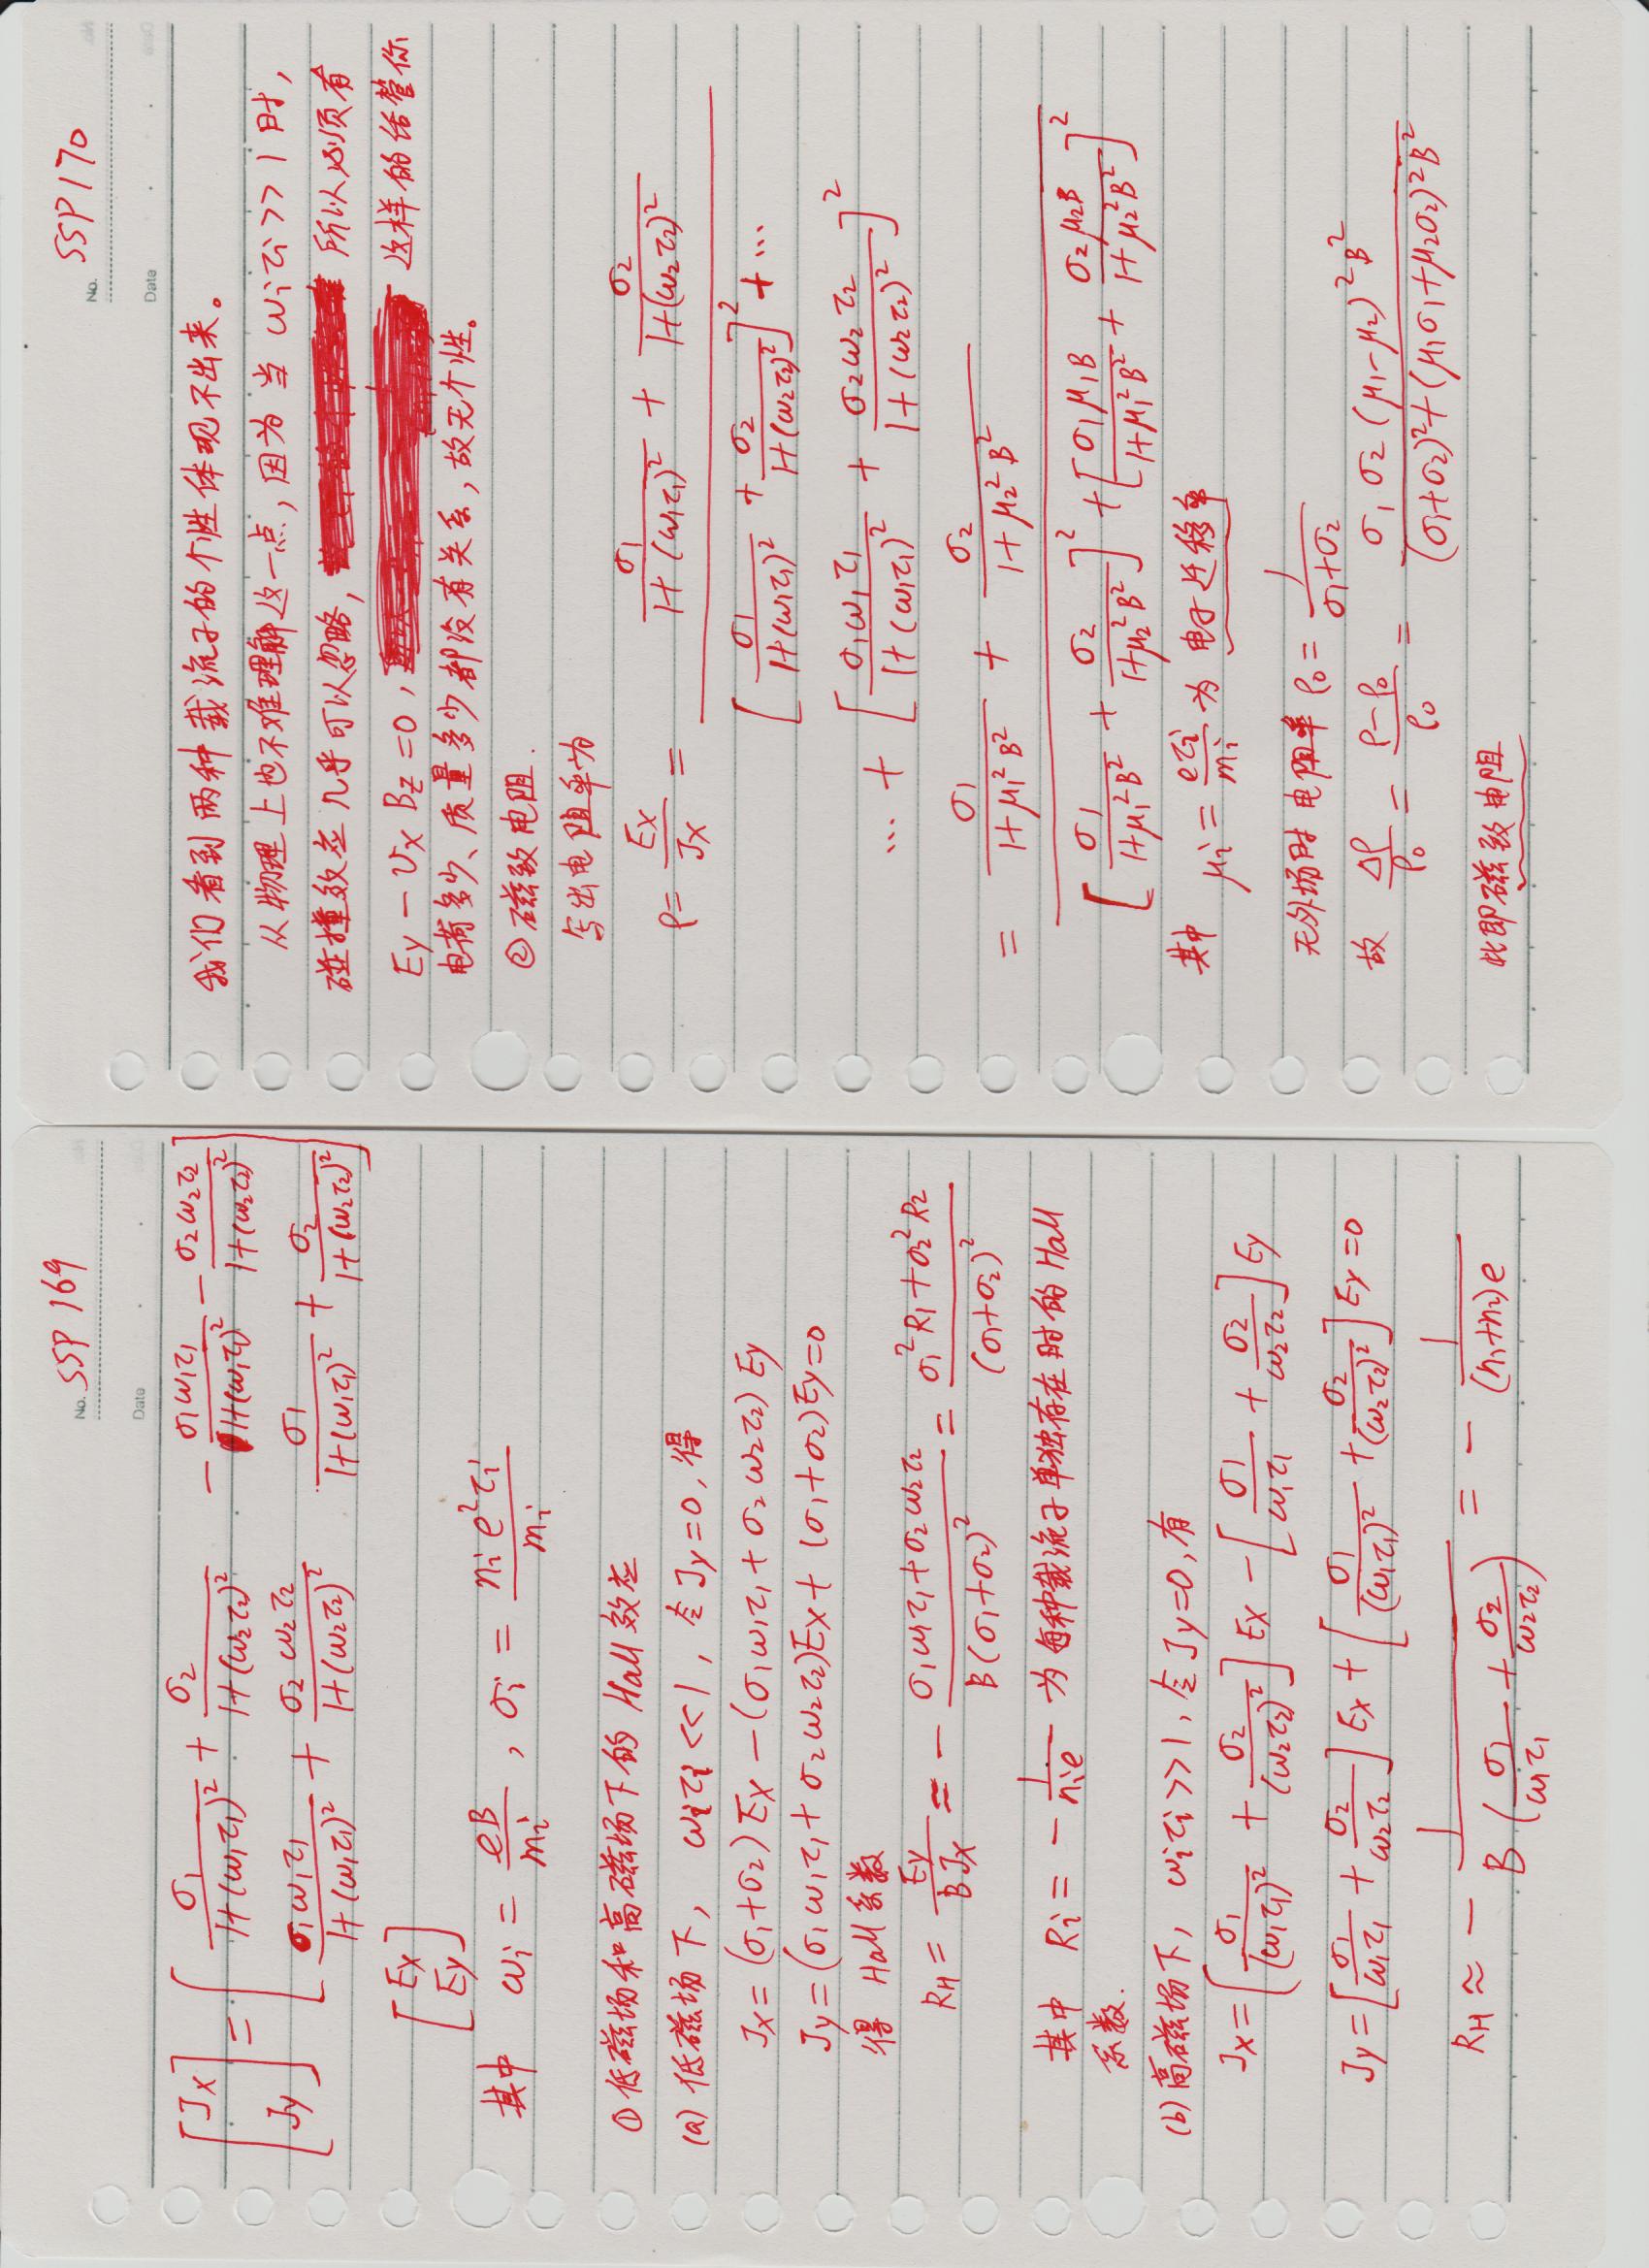 No. SSP 169
Date
[Jx Jy] = [σ1/(1+(ω1τ1)²) + σ2/(1+(ω2τ2)²)   −σ1ω1τ1/(1+(ω1τ1)²) − σ2ω2τ2/(1+(ω2τ2)²)
σ1ω1τ1/(1+(ω1τ1)²) + σ2ω2τ2/(1+(ω2τ2)²)   σ1/(1+(ω1τ1)²) + σ2/(1+(ω2τ2)²)]
[Ex Ey]
其中 ωi = eB/mi , σi = ni e²τi/mi
① 低磁场和高磁场下的 Hall 效应
(a) 低磁场下, ωiτi << 1, 令 Jy=0, 得
Jx = (σ1+σ2) Ex − (σ1ω1τ1 + σ2ω2τ2) Ey
Jy = (σ1ω1τ1 + σ2ω2τ2)Ex + (σ1+σ2)Ey=0
得 Hall 系数
RH = Ey/(BJx) ≈ − (σ1ω1τ1+σ2ω2τ2)/(B(σ1+σ2)²) = (σ1²R1+σ2²R2)/(σ1+σ2)²
其中 Ri = − 1/(nie) 为每种载流子单独存在时的 Hall
系数.
(b) 高磁场下, ωiτi >> 1, 令 Jy=0, 有
Jx = [σ1/(ω1τ1)² + σ2/(ω2τ2)²] Ex − [σ1/(ω1τ1) + σ2/(ω2τ2)] Ey
Jy = [σ1/(ω1τ1) + σ2/(ω2τ2)] Ex + [σ1/(ω1τ1)² + σ2/(ω2τ2)²] Ey = 0
RH ≈ − 1/(B(σ1/(ω1τ1) + σ2/(ω2τ2))) = − 1/((n1+n2)e)
No. SSP 170
Date
我们看到两种载流子的个性体现不出来。
从物理上也不难理解这一点, 因为当 ωiτi >> 1 时,
碰撞效应几乎可以忽略, 所以必须有
Ey − υx Bz = 0, 这样的话管你
电荷多少、质量多少都没有关系, 故无个性。
② 磁致电阻.
写出电阻率为
ρ = Ex/Jx = (σ1/(1+(ω1τ1)²) + σ2/(1+(ω2τ2)²)) / [σ1/(1+(ω1τ1)²) + σ2/(1+(ω2τ2)²)]² + ...
... + [σ1ω1τ1/(1+(ω1τ1)²) + σ2ω2τ2/(1+(ω2τ2)²)]²
= (σ1/(1+μ1²B²) + σ2/(1+μ2²B²)) / [σ1/(1+μ1²B²) + σ2/(1+μ2²B²)]² + [σ1μ1B/(1+μ1²B²) + σ2μ2B/(1+μ2²B²)]²
其中 μi = eτi/mi 为 电子迁移率
无外场时电阻率 ρ0 = 1/(σ1+σ2)
故 Δρ/ρ0 = (ρ−ρ0)/ρ0 = σ1σ2(μ1−μ2)²B²/((σ1+σ2)²+(μ1σ1+μ2σ2)²B²)
此即磁致电阻